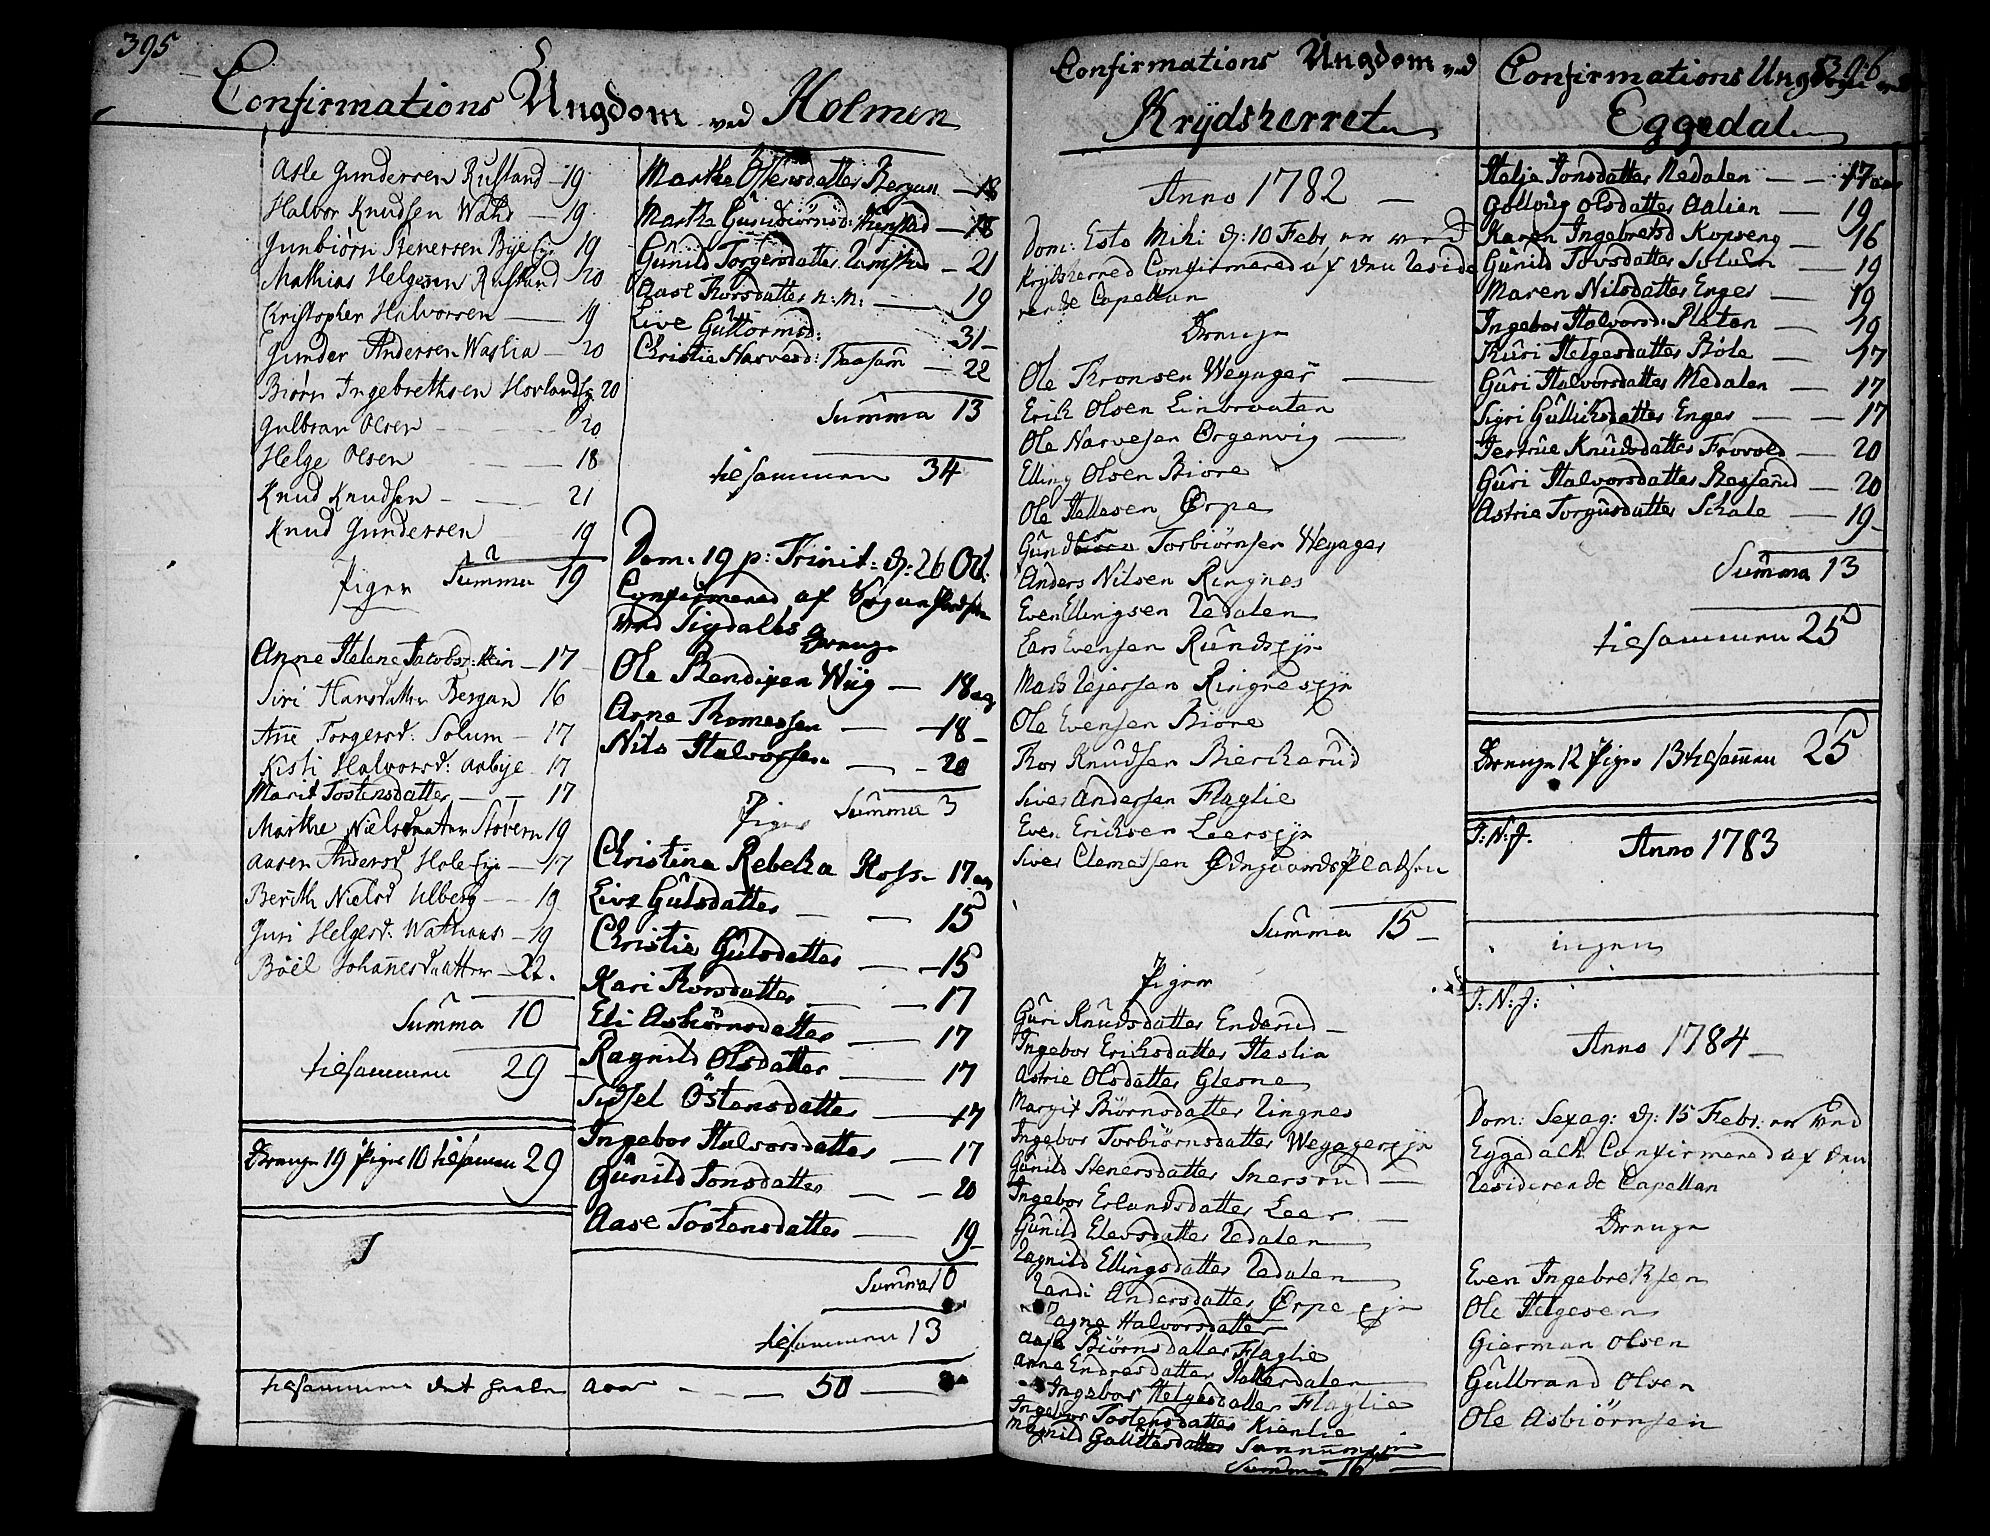 395
Confirmations Ungdom ved Holmen
Asle Gundersen Rustand - 19
Halvor Knudsen - 19
Gunbiørn Stenersen Bye Ey. 19
Mathias Helgesen Rustand 20
Christopher Halvorsen 19
Gunder Andersen Waslia - 20
Biørn Ingebrethsen Hovland Ey 20
Gulbran Olsen 20
Helge Olsen 18
Knud Knudsen - 21
Knud Gundersen 19
Summa 19
Piger
Anne Helene Jacobsd: - 17
Siri Hansdatter Bergan 16
Anne Torgersd: Solum - 17
Kisti Halvorsd: Aabye - 17
Marit Tostensdatter - 17
Marthe Nielsdatter Stovern 19
Aaren Andersd Hole Ey - 17
Berith Nielsd Ulberg - 19
Guri Helgesd. - 19
Böel Johannesdatter - 22.
Summa 10
tilsammen 29
Drenge 19 Piger 10 tilsamen 29
Marthe Bergan - 18
Marthe Gundbiörnsd: - 18
Günild Torgersdatter - 21
Aase Torsdatter n: m: 19
Live Güttormsd: 31 -
Christie Narvesd: Braaten - 22
Summa 13
tilsammen 34
Dom. 19 p: Trinit: d: 26 Oct.
Confirmered af Sogne Præsten
ved Sigdals
Drenge
Ole Bendixen Wiig - 18 aar
Arne Thomesen - 18 -
Nils Halvorsen - 20
Summa 3
Piger
Christina Rebekka Koss - 17 aar
Live Gulsdatter - 15
Christie Gulsdatter - 15
Kari Torsdatter - 17
Eli Asbiörnsdatter - 17
Ragnild Olsdatter - 17
Sidsel Östensdatter - 17
Ingebor Halvorsdatter - 17
Günild Jonsdatter - 20
Aase Tostensdatter - 19 -
Summa 10
tilsammen 13
tilsammen det heele Aar - 50
Confirmations Ungdom ved
Krydsherret
Anno 1782
Dom: Esto Mihi d: 10 Febr er ved
Krydsherred Confirmered af den Reside
rende Capellan
Drenge
Ole Tronsen Weyager
Erik Olsen Linbraaten
Ole Narvesen Ørgenvig
Elling Olsen Biøre
Ole Hellesen Ørpe
Gund Torbiørnsen Weyager
Anders Nilsen Ringnes
Even Ellingsen Redalen
Lars Evensen Rundsejn
Mads Rejersen Ringnesejn
Ole Evensen Biöre
Tor Knudsen Bierkerud
Siver Andersen Flaglie
Even Eriksen Leersejn
Siver Clemetsen Ødegaards Pladsen
Summa 15 -
Piger
Guri Knudsdatter Enderud
Ingebor Eriksdatter Heslia
Astrie Olsdatter Glesne
Margit Biörnsdatter Ringnes
Ingebor Torbiörnsdatter Weyagersejn
Günild Stenersdatter Snersrud
Ingebor Erlandsdatter Leer
Günild Elevsdatter Redalen
Ragnild Ellingsdatter Redalen
Randi Andersdatter Ørpe ejn
Ragne Halvorsdatter
Aase Biörnsdatter Flaglie
Anne Endresdatter Hallesdalen
Ingebor Helgesdatter Flaglie
Ingebor Tostensdatter Kienlie
Summa 16
396
Confirmations Ungdom ved
Eggedal
Helje Jonsdatter Nedalen - 17 aar
Gollöug Olsdatter Aalien - 19
Karen Ingebretsd Kopseng - 16
Günild Tovsdatter Solum - 19
Maren Nilsdatter Enger - 19
Ingebor Halvorsd: Platen - 19
Turi Helgesdatter Böle - 17
Guri Halvorsdatter Medalen - 17
Sigri Gulliksdatter Enger - 17
Jertrue Knudsdatter Frovold - 20
Guri Halvorsdatter Bagserud - 20
Astrie Torgusdatter Skale - 19 -
Summa 13
tilsammen 25
Drenge 12 Piger 13 tilsamen 25
J: N: J.
Anno 1783
ingen
J: N: J:
Anno 1784
Dom: Sexag: d: 15 Febr: er ved
Eggedahl Confirmered af den
Residerende Capellan
Drenge
Even Ingebretsen
Ole Helgesen
Gierman Olsen
Gulbrand Olsen
Ole Asbiörnsen